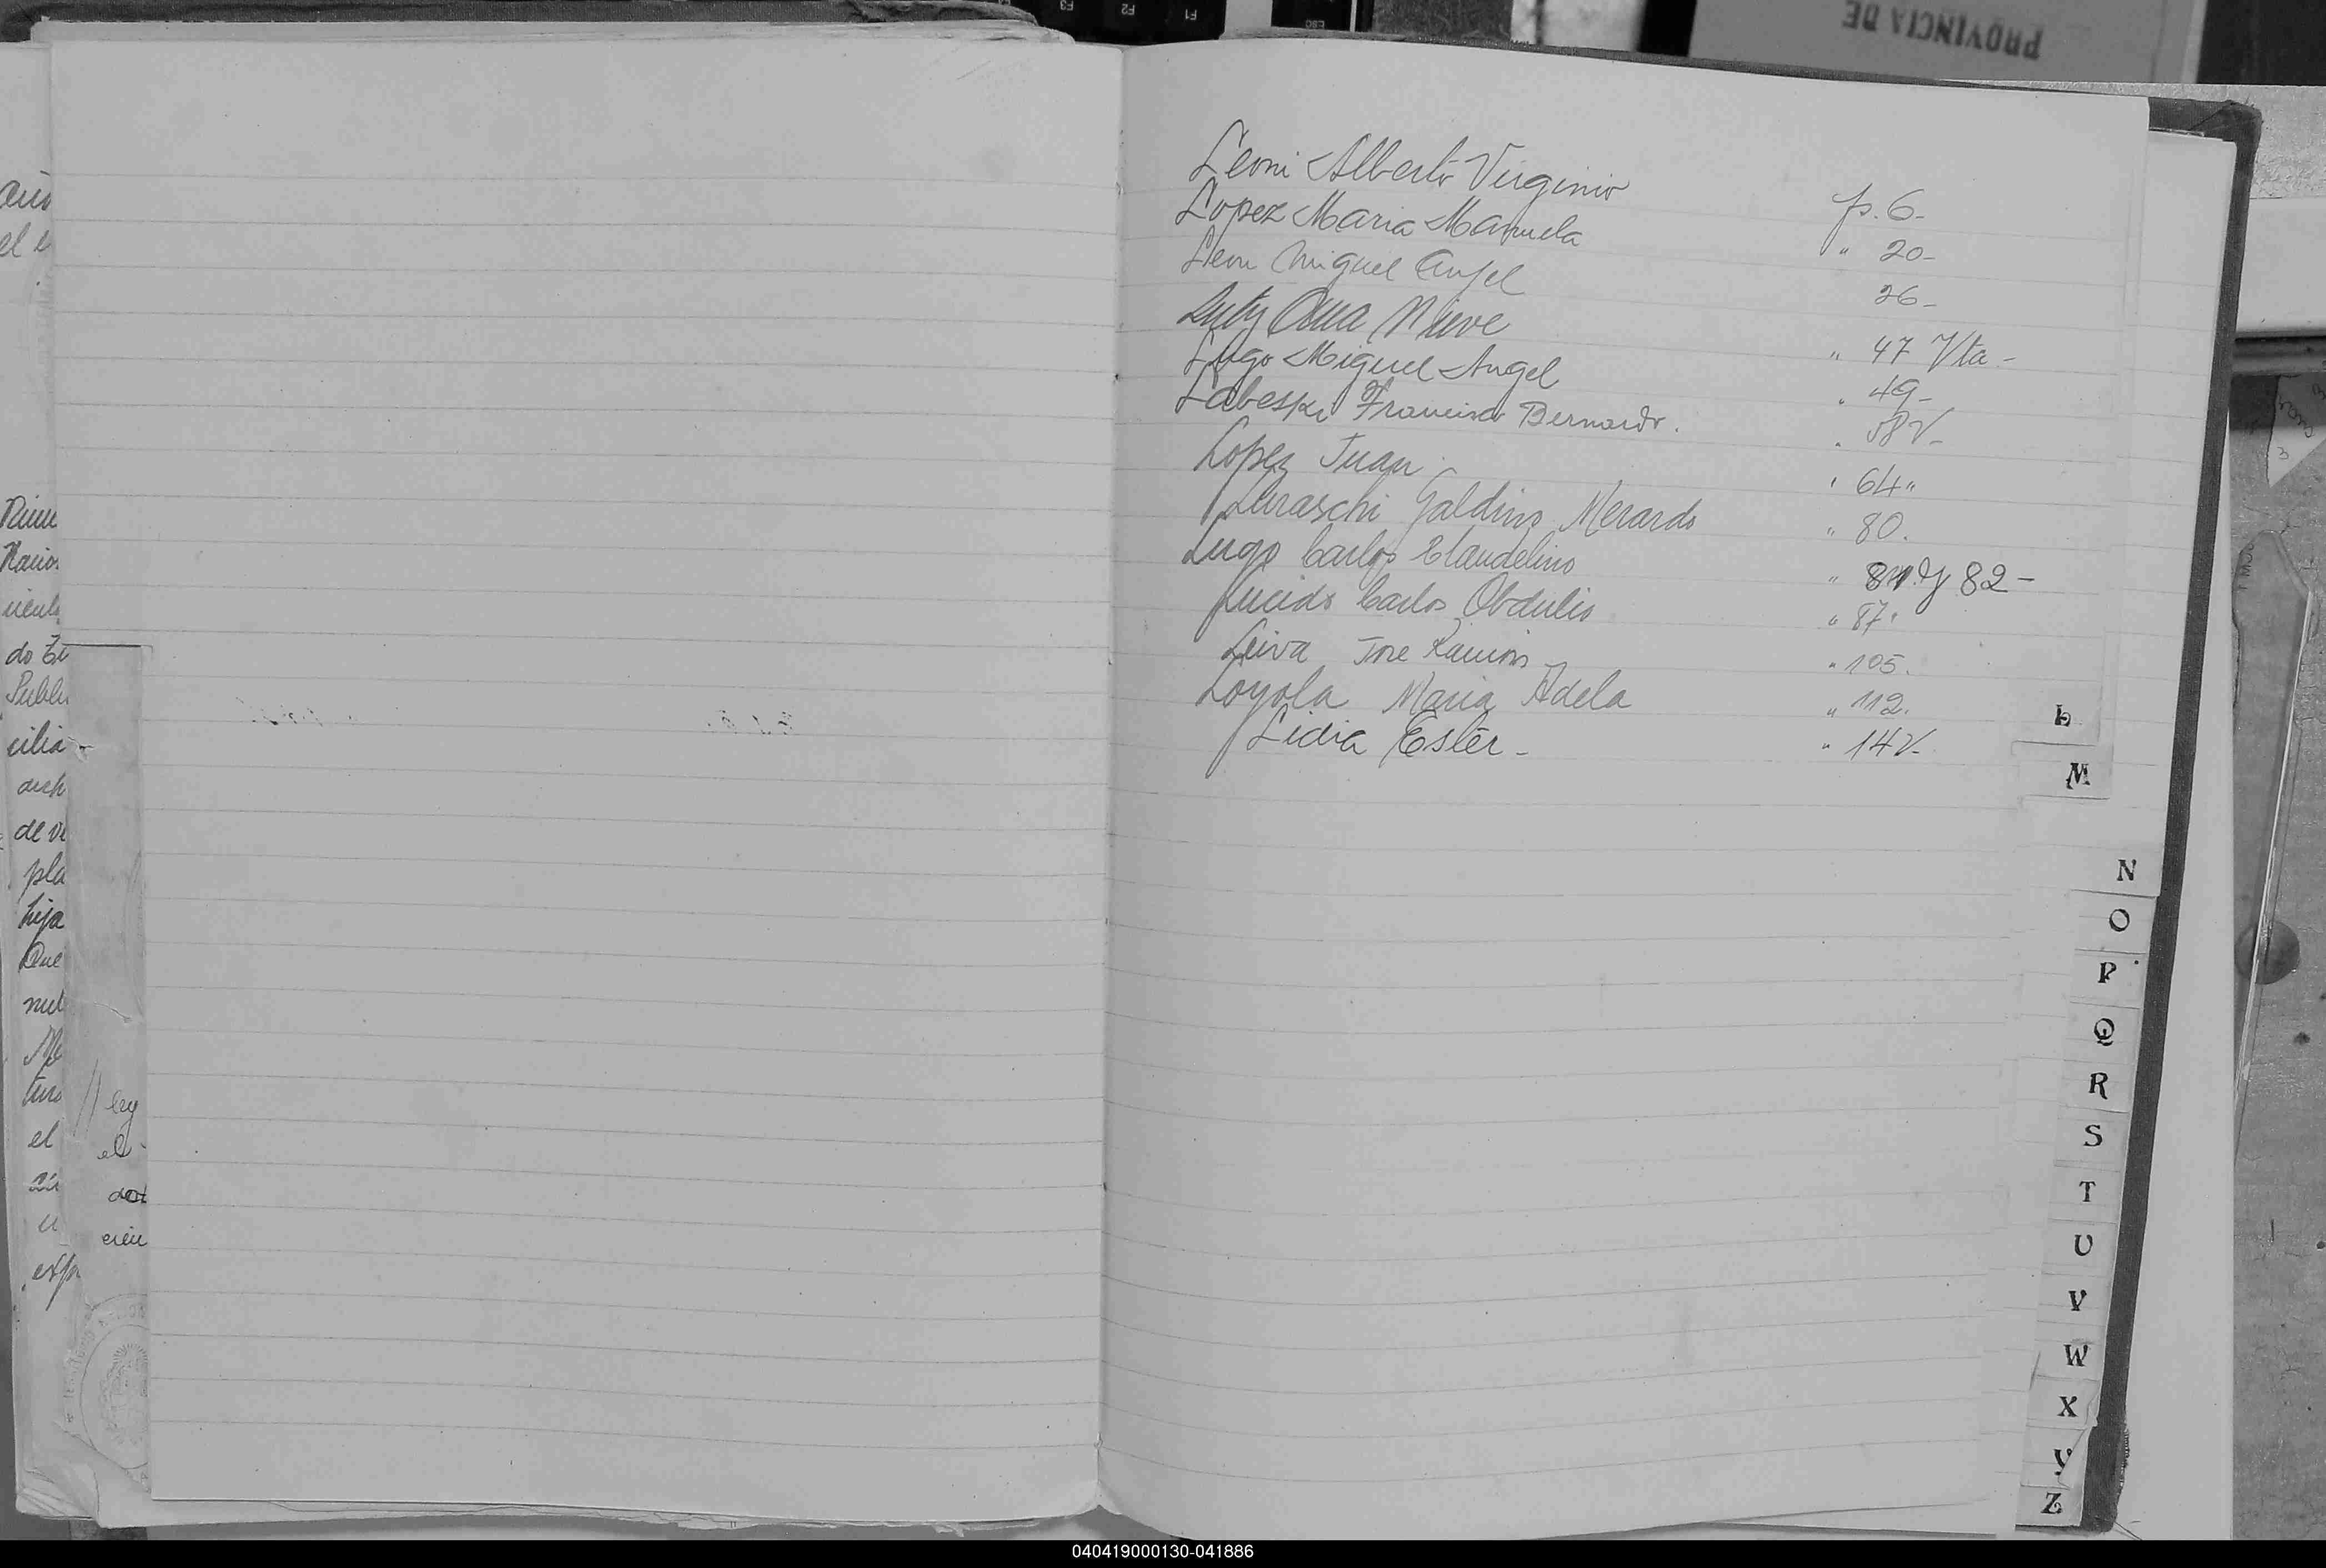 F3 F2 F1 ESC
PROVINCIA DE
el e
do
cilia
de
pla
hija
Que
el
ley
el
Leoni Alberto Virginio p. 6-
Lopez Maria Manuela " 20-
Leon Miguel Angel 26-
Luty Ana Nieve " 47 Vta-
Lugo Miguel Angel " 49-
Labeski Francisco Bernardo. " 58V-
Lopez Juan " 64"
Luraschi Galdino Merardo " 80.
Lugo Carlos Claudelino " 81 y 82-
Lucido Carlos Obdulio " 87"
Leiva Jose Ramon " 105.
Loyola Maria Adela " 112.
Lidia Ester- " 14V-
L
M
N
O
P
Q
R
S
T
U
V
W
X
Y
Z
040419000130-041886